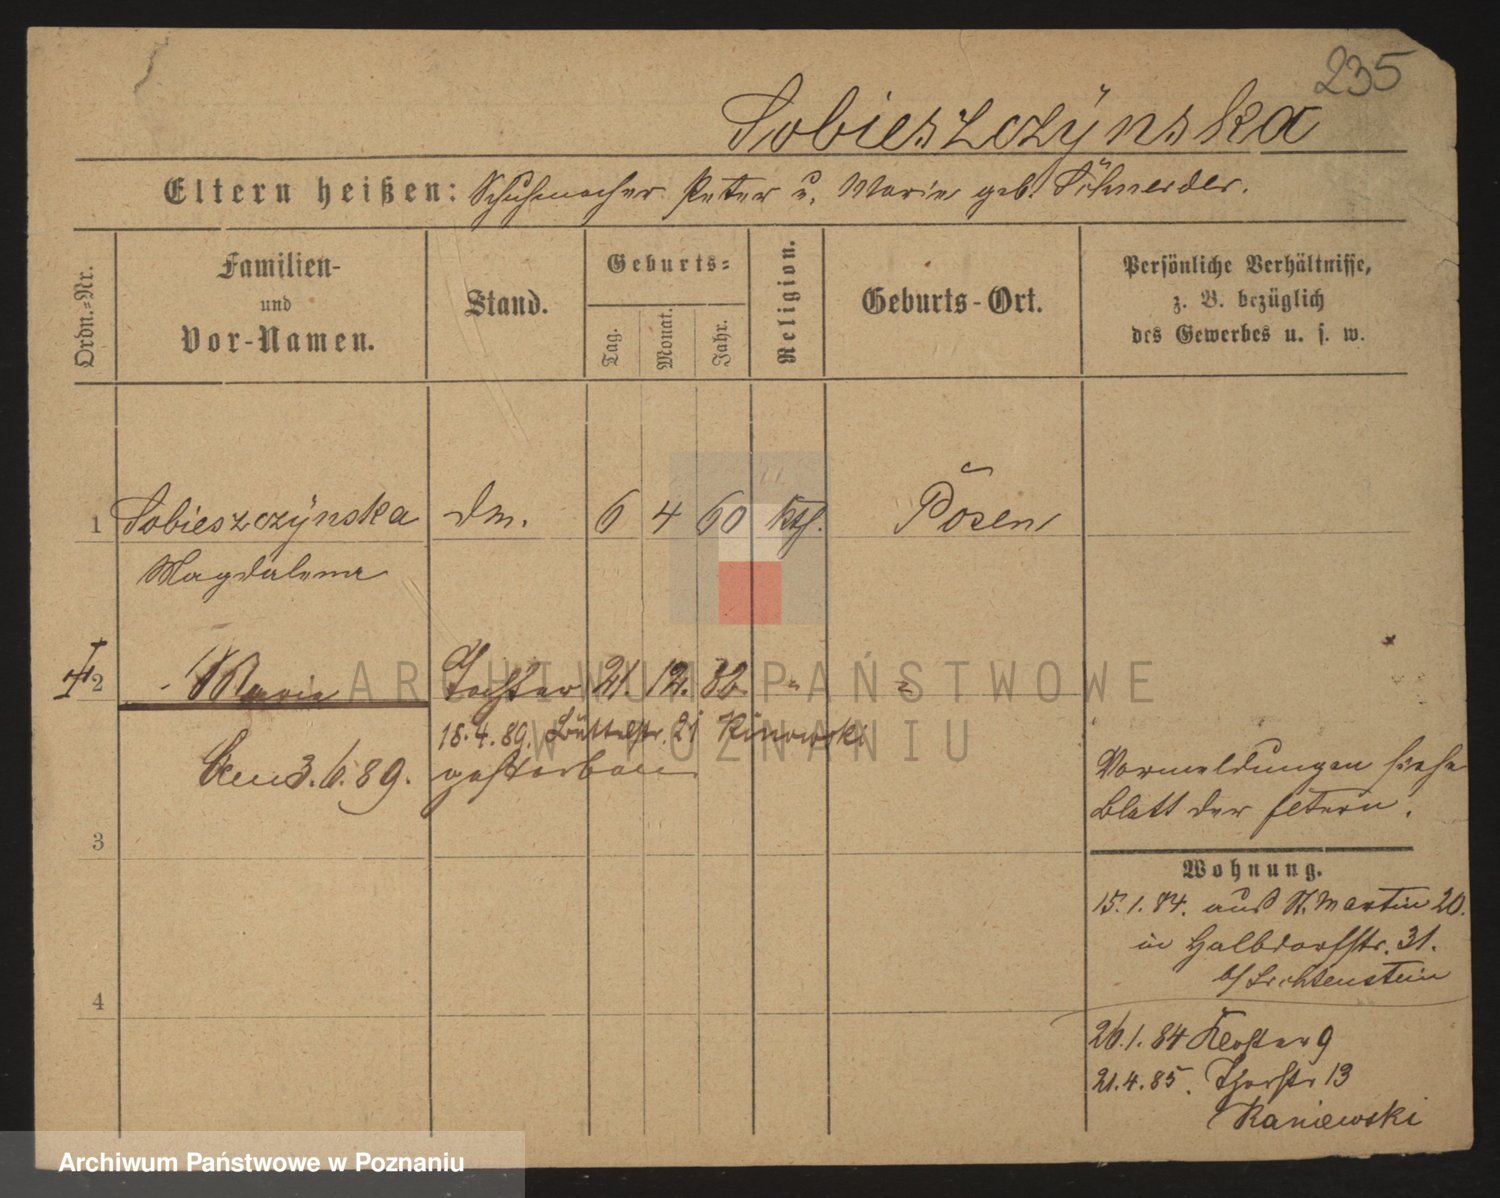 235
Sobieszczÿnska
Eltern heißen: Schuhmacher Peter u. Marie geb. Schneider.
Ordn.-Nr.
Familien-
und
Vor-Namen.
Stand.
Geburts-
Tag.
Monat.
Jahr.
Religion.
Geburts-Ort.
Persönliche Verhältnisse,
z. B. bezüglich
des Gewerbes u. s. w.
1 Sobieszczÿnska dm. 6 4 60 kth. Posen
Magdalena
2 Maria Tochter 21. 12. 82. " "
18.4.89. Büttelstr. 21 Kinowski
am 3.6.89. gestorben
Vormeldungen siehe
Blatt der Eltern.
3
Wohnung.
15.1.84. aus St. Martin 20.
in Halbdorfstr. 31.
b/ Lichtenstein
4
26.1.84 Kloster 9
21.4.85. Thorstr 13
Kaniewski
ARCHIWUM PAŃSTWOWE
W POZNANIU
Archiwum Państwowe w Poznaniu